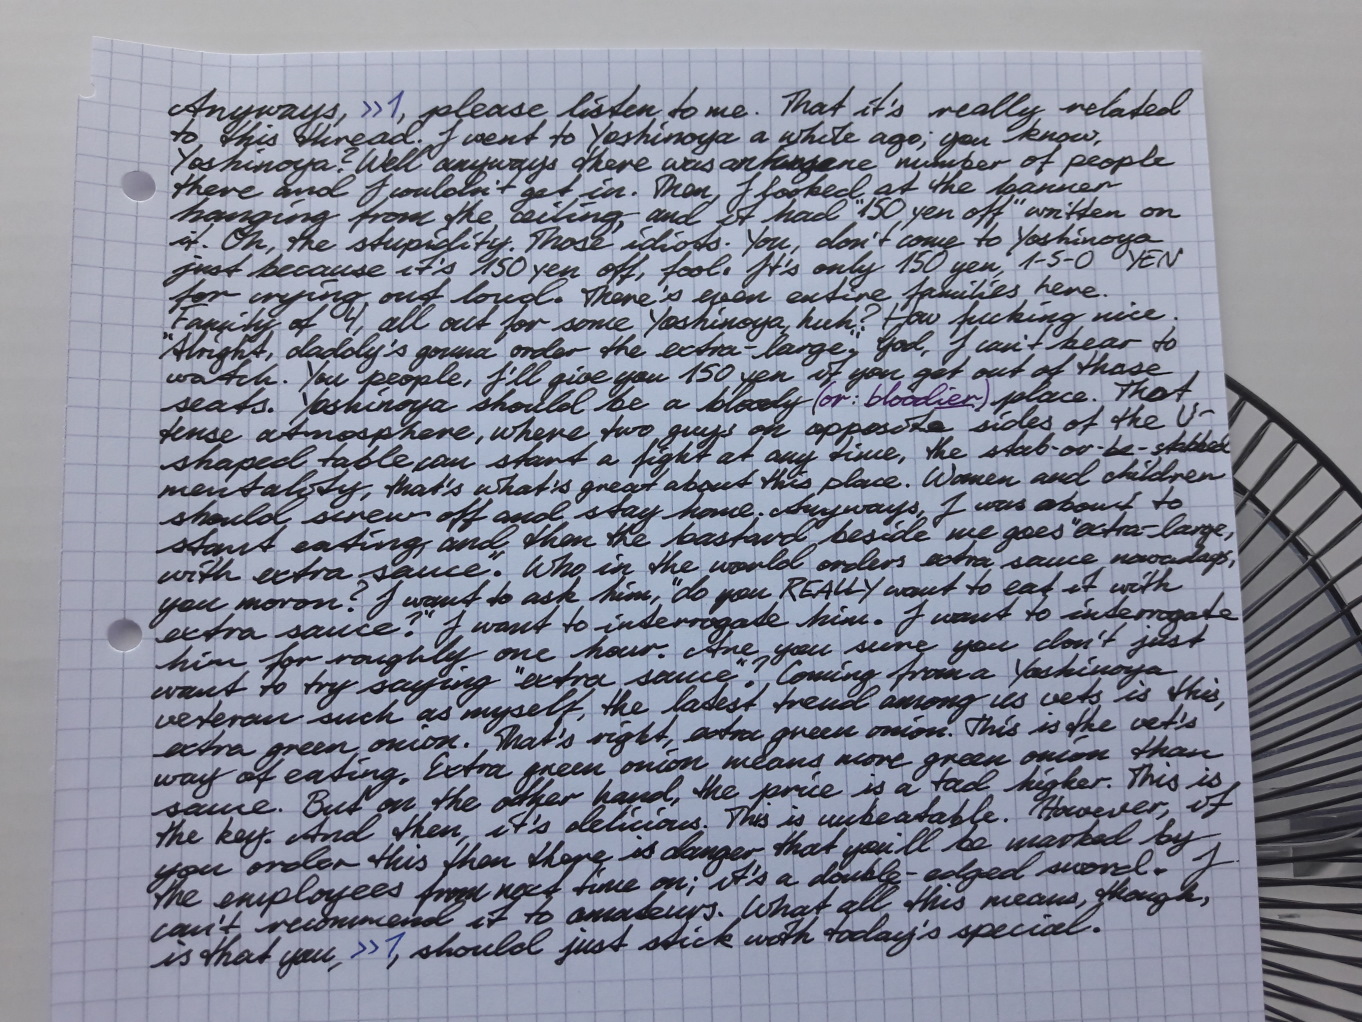 Anyways, >>1, please listen to me. That it's really related
to this thread. I went to Yoshinoya a while ago; you know,
Yoshinoya? Well anyways there was an insane number of people
there and I couldn't get in. Then, I looked at the banner
hanging from the ceiling, and it had "150 yen off" written on
it. Oh, the stupidity. Those idiots. You, don't come to Yoshinoya
just because it's 150 yen off, fool. It's only 150 yen, 1-5-0 YEN
for crying out loud. There's even entire families here.
Family of 4, all out for some Yoshinoya, huh? How fucking nice.
"Alright, daddy's gonna order the extra-large." God, I can't bear to
watch. You people, I'll give you 150 yen if you get out of those
seats. Yoshinoya should be a bloody (or: bloodier) place. That
tense atmosphere, where two guys on opposite sides of the U-
shaped table can start a fight at any time, the stab-or-be-stabbed
mentality, that's what's great about this place. Women and children
should screw off and stay home. Anyways, I was about to
start eating, and then the bastard beside me goes "extra-large,
with extra sauce". Who in the world orders extra sauce nowadays,
you moron? I want to ask him, "do you REALLY want to eat it with
extra sauce?" I want to interrogate him. I want to interrogate
him for roughly one hour. Are you sure you don't just
want to try saying "extra sauce"? Coming from a Yoshinoya
veteran such as myself, the latest trend among us vets is this,
extra green onion. That's right, extra green onion. This is the vet's
way of eating. Extra green onion means more green onion than
sauce. But on the other hand, the price is a tad higher. This is
the key. And then, it's delicious. This is unbeatable. However, if
you order this then there is danger that you'll be marked by
the employees from next time on; it's a double-edged sword. I
can't recommend it to amateurs. What all this means, though,
is that you, >>1, should just stick with today's special.